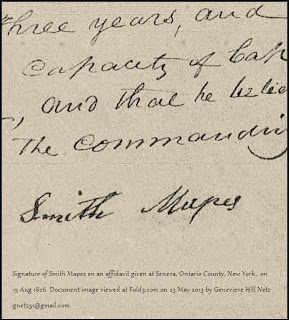 three years, and
capacity of Cap
, and that he belie
The commandin
Smith Mapes
Signature of Smith Mapes on an affidavit given at Seneca, Ontario County, New York, on
15 Aug 1826. Document image viewed at Fold3.com on 23 May 2013 by Genevieve Hill Netz
gnetz51@gmail.com.